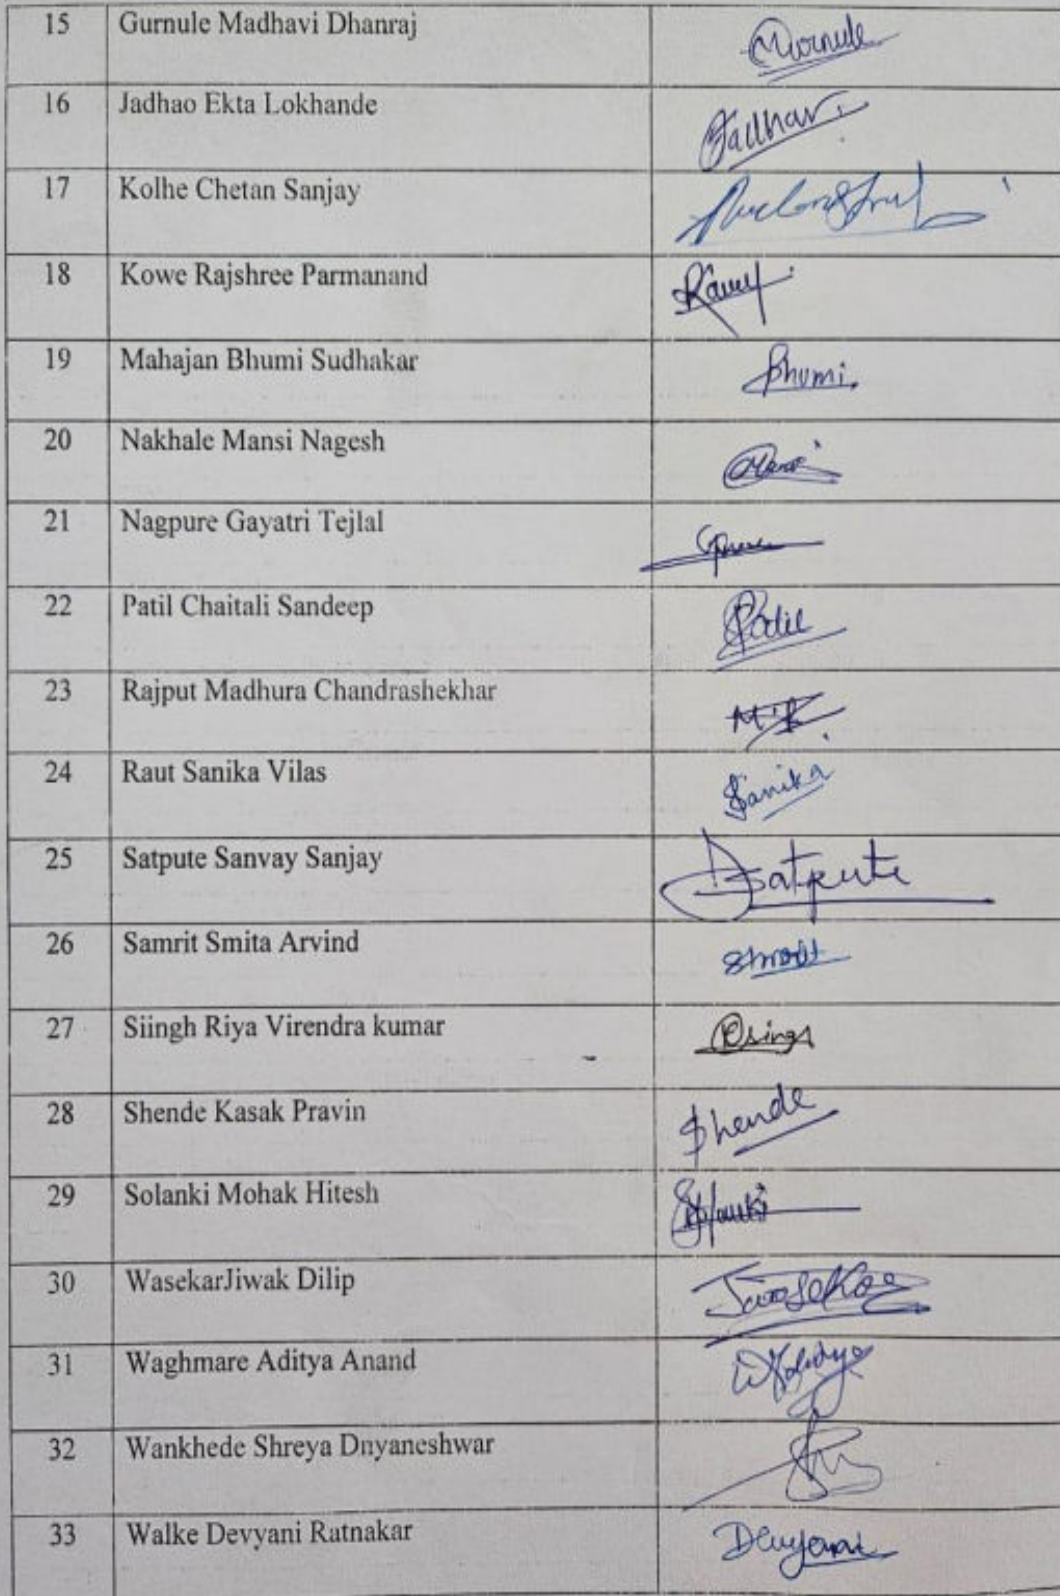 15 Gurnule Madhavi Dhanraj
16 Jadhao Ekta Lokhande
17 Kolhe Chetan Sanjay
18 Kowe Rajshree Parmanand
19 Mahajan Bhumi Sudhakar Bhumi
20 Nakhale Mansi Nagesh
21 Nagpure Gayatri Tejlal
22 Patil Chaitali Sandeep
23 Rajput Madhura Chandrashekhar
24 Raut Sanika Vilas Sanika
25 Satpute Sanvay Sanjay Satpute
26 Samrit Smita Arvind
27 Siingh Riya Virendra kumar
28 Shende Kasak Pravin Shende
29 Solanki Mohak Hitesh
30 WasekarJiwak Dilip
31 Waghmare Aditya Anand
32 Wankhede Shreya Dnyaneshwar
33 Walke Devyani Ratnakar